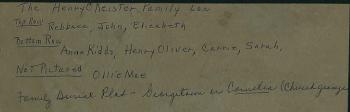 The Henry O Keister, Family Lea
Top Row Rebbeca, John, Elizabeth
Bottom Row
Anna Kidds, Henry Oliver, Carrie, Sarah,
Not Pictured Ollie Mae
Family Burial Plot - Georgetown or Cornelia (Church grounds